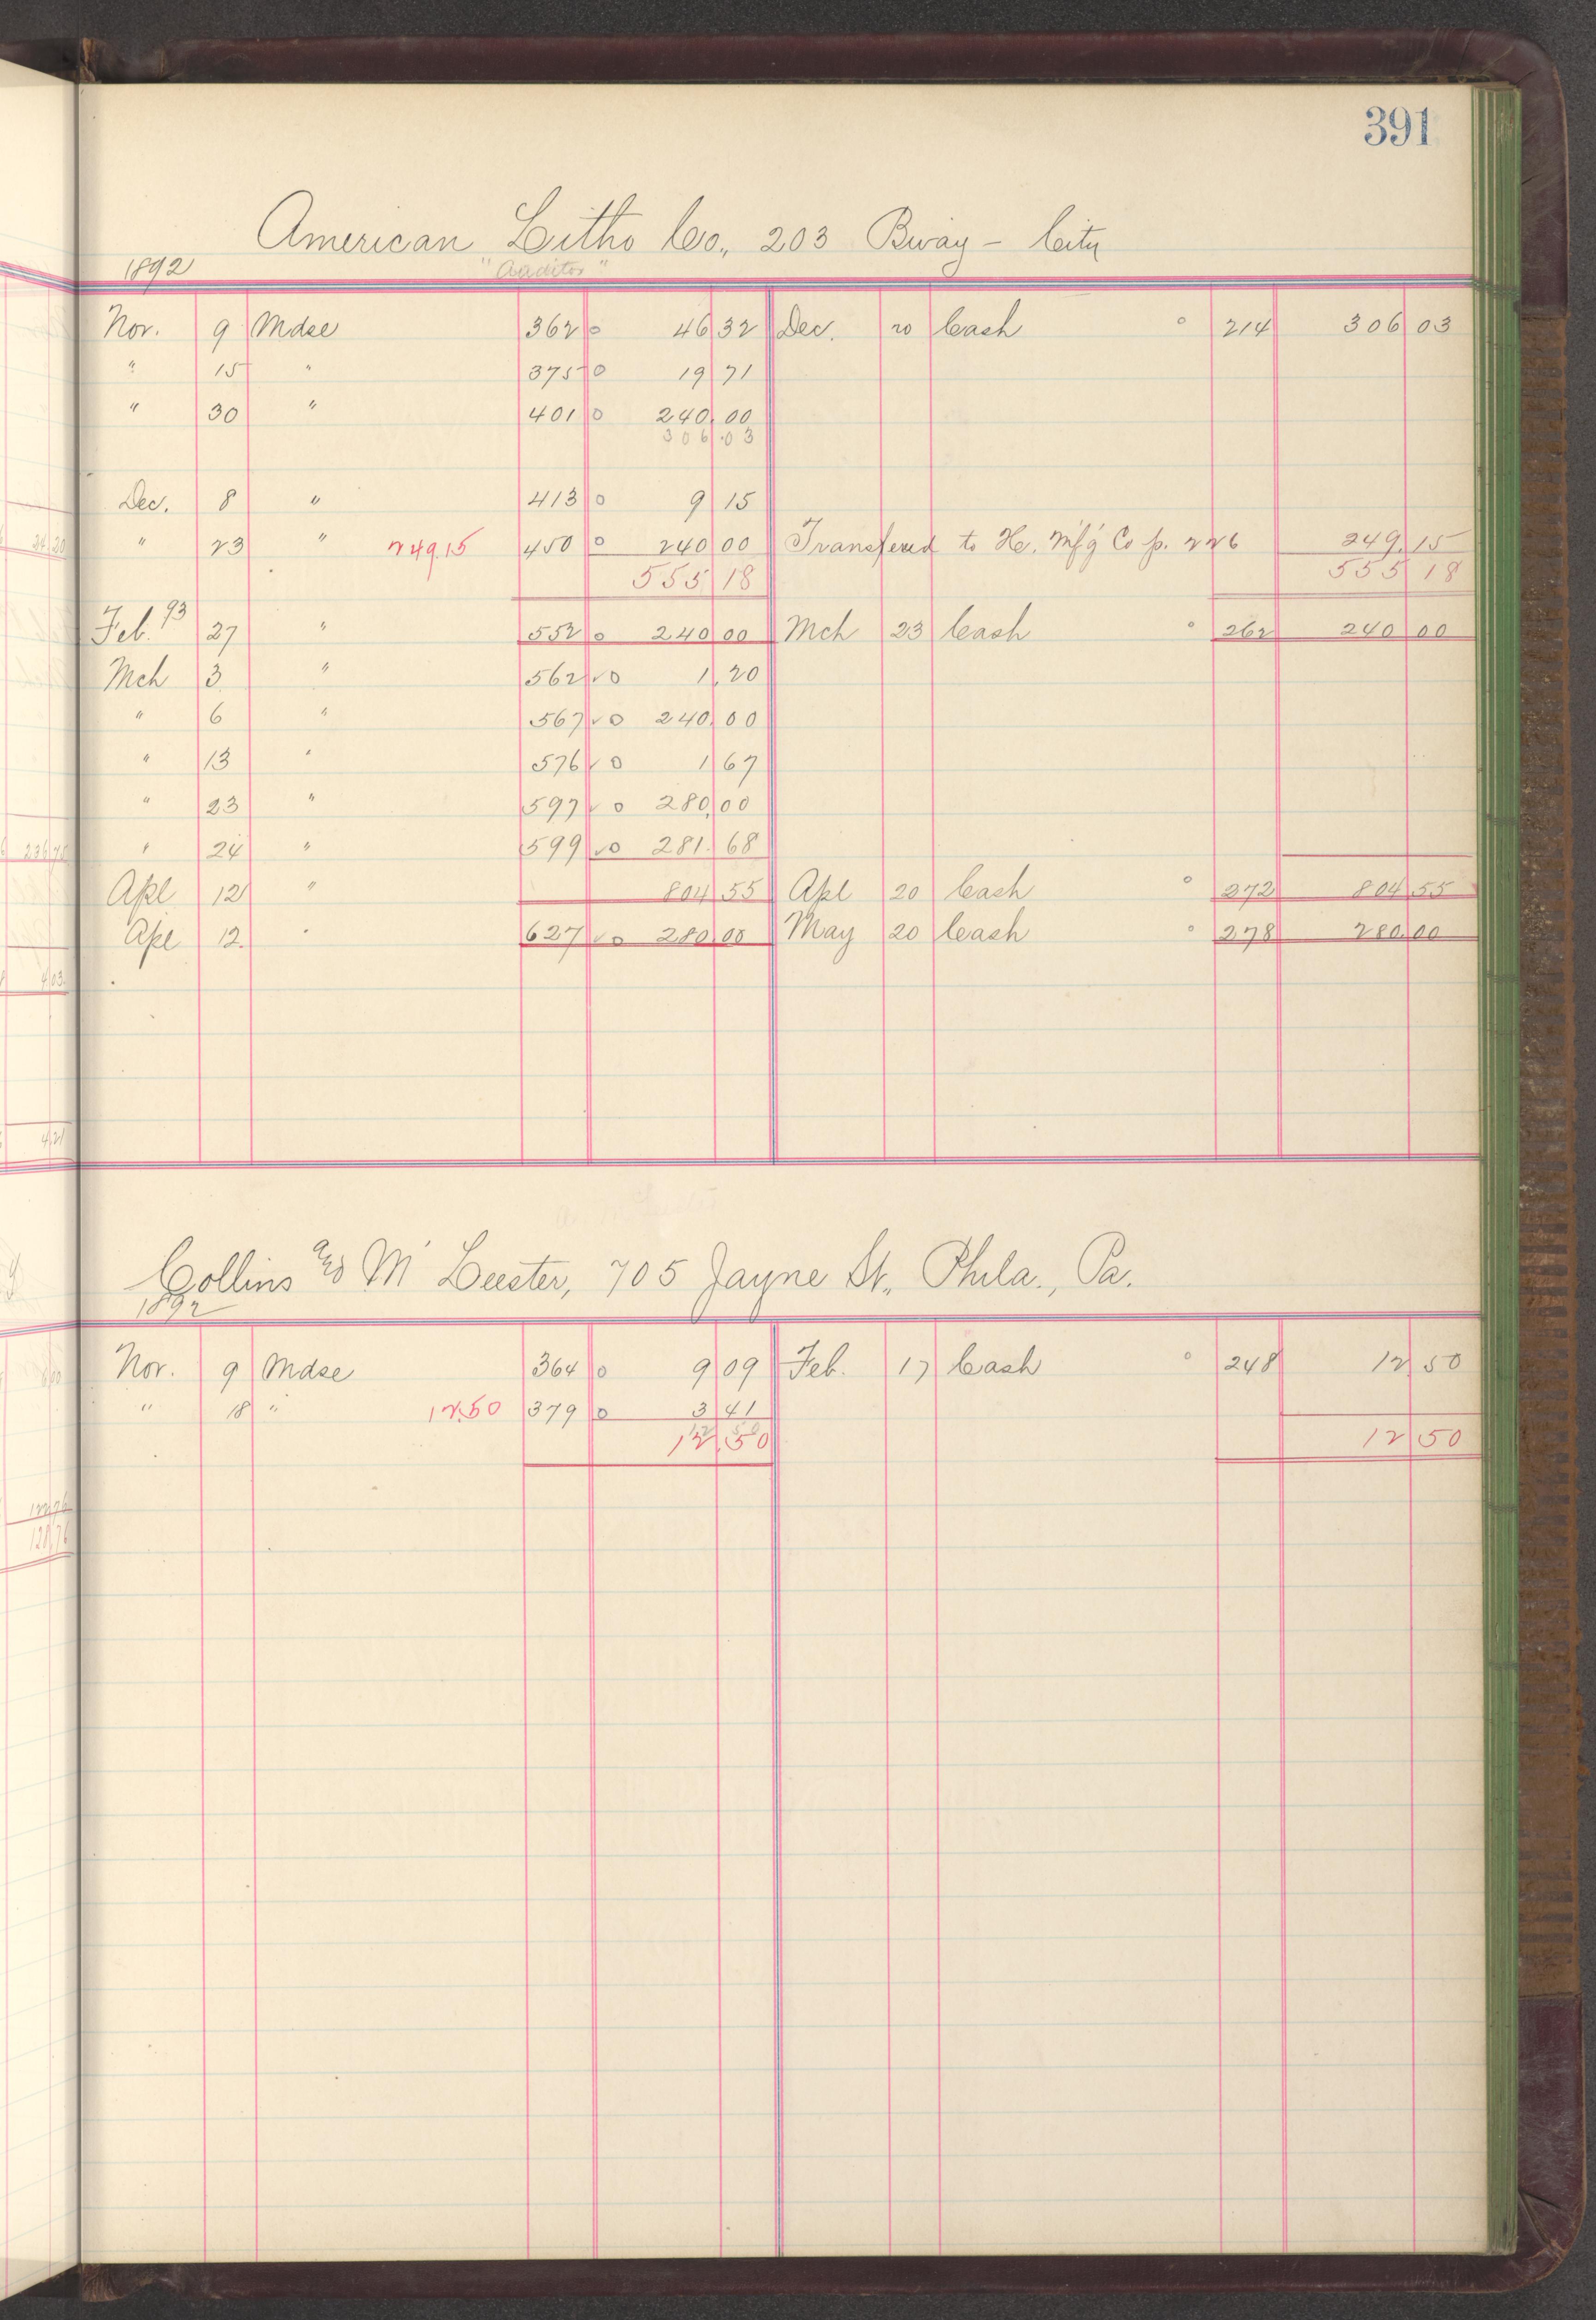 391
American Litho Co., 203 Bway – City
1892 "Auditor"
Nov. 9 Mdse 362 0 46 32 Dec. 20 Cash 0 214 306 03
" 15 " 375 0 19 71
" 30 " 401 0 240.00
306.03
Dec. 8 " 413 0 9 15
" 23 " 249.15 450 0 240 00 Transfered to He. M'f'g Co p. 226 249.15
555 18 555 18
Feb. 93 27 " 552 0 240 00 Mch 23 Cash 0 262 240 00
Mch 3 " 562 ✓0 1.20
" 6 " 567 ✓0 240.00
" 13 " 576 ✓0 1 67
" 23 " 597 ✓0 280.00
" 24 " 599 ✓0 281.68
Apl 12 " 804 55 Apl 20 Cash 0 272 804 55
Apl 12. " 627 ✓0 280 00 May 20 Cash 0 278 280.00
Collins and Mc Leester, 705 Jayne St., Phila., Pa.
1892
Nov. 9 Mdse 364 0 9 09 Feb. 17 Cash 0 248 12.50
" 18 " 12.50 379 0 3 41
12.50 12 50